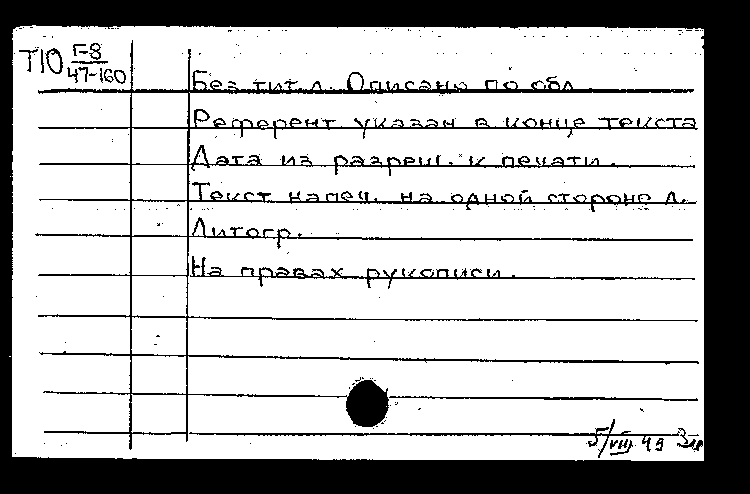 Т10 Г-8
47-160
Без тит. л. Описано по обл.
Референт указан в конце текста
Дата из разреш. к печати.
Текст напеч. на одной стороне л.
Литогр.
На правах рукописи.
5/VIII 49